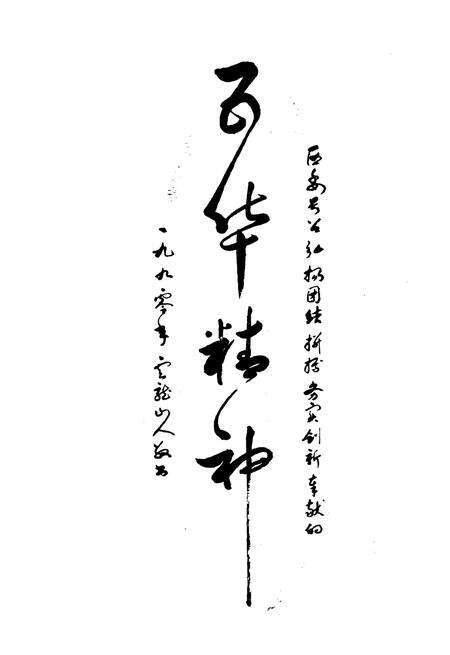 弘扬团结拼搏务实创新奉献的
百华精神
一九九零年云龙山人敬书